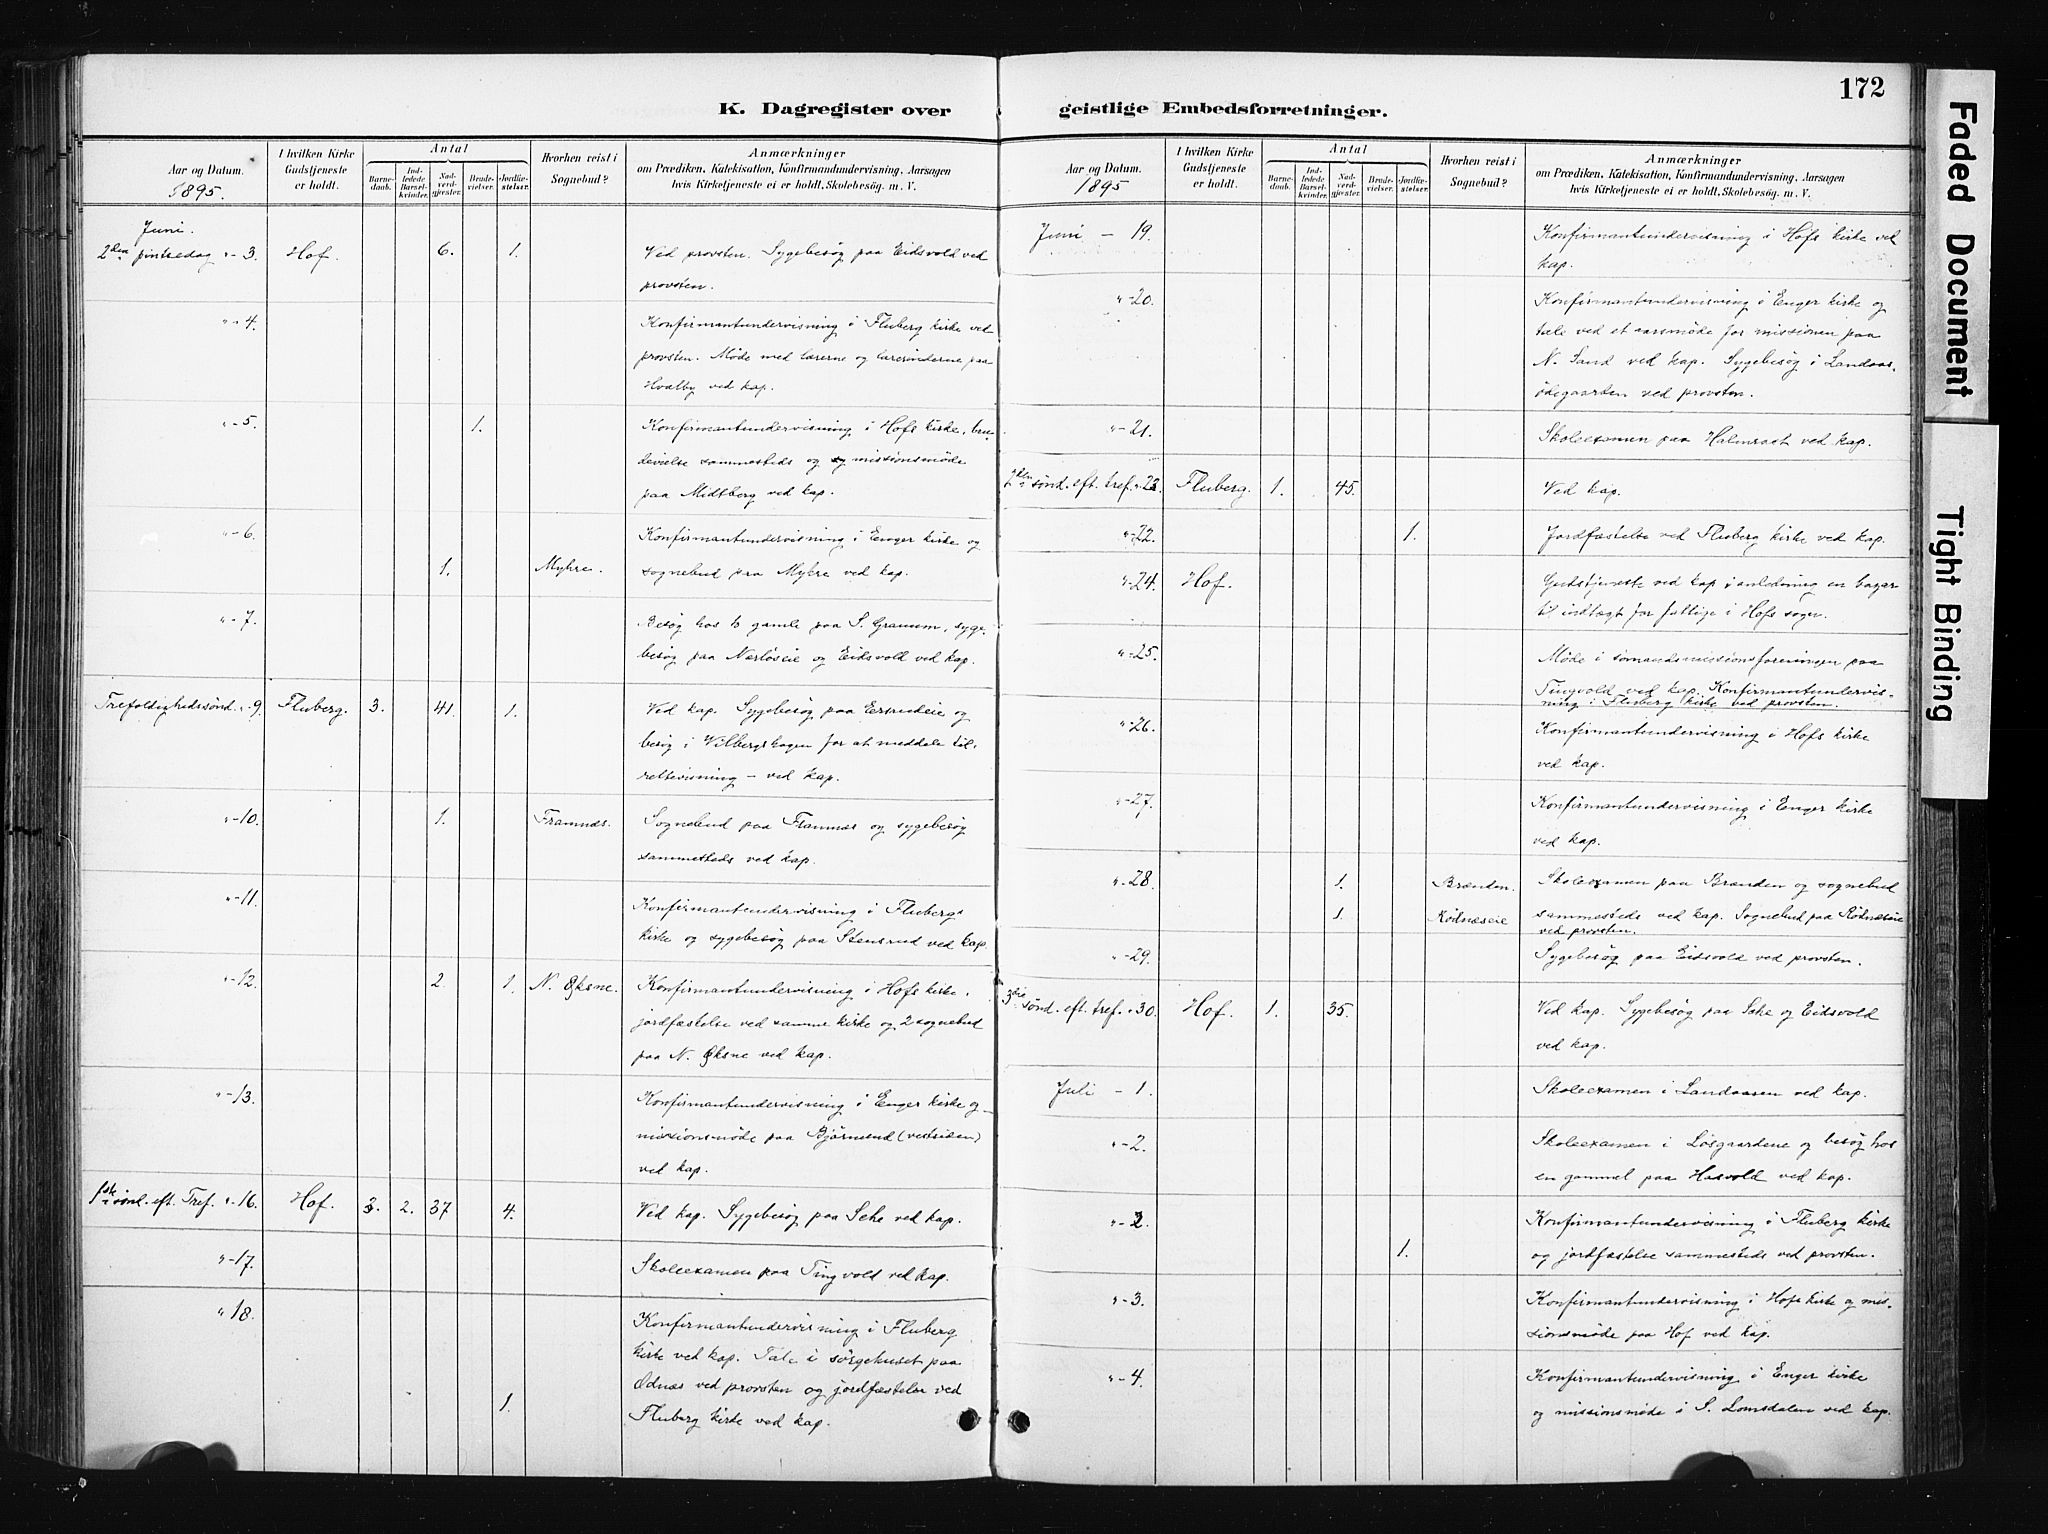 172
K. Dagregister over geistlige Embedsforretninger.
Aar og Datum. 1895.
I hvilken Kirke Gudstjeneste er holdt.
Antal
Barnedaab.
Indledede Barselkvinder.
Nadverdgjester.
Brudevielser.
Jordfæstelser.
Hvorhen reist i Sognebud?
Anmærkninger
om Prædiken, Katekisation, Konfirmandundervisning, Aarsagen
hvis Kirketjeneste ei er holdt, Skolebesøg. m. V.
Juni.
2den pintsedag "- 3. Hof. 6. 1. Ved provsten. Sygebesøg paa Eidsvold ved
provsten.
"- 4. Konfirmantundervisning i Fluberg kirke ved
provsten. Møde med lærerne og lærerinderne paa
Hvalby ved kap.
"- 5. 1. Konfirmantundervisning i Hofs kirke, bru-
devielse sammesteds og missionsmøde
paa Midtberg ved kap.
"- 6. Konfirmantundervisning i Enger kirke og
1. Myhre. sognebud paa Myhre ved kap.
"- 7. Besøg hos to gamle paa S. Granum, syge-
besøg paa Nerløseie og Eidsvold ved kap.
Trefoldighedssønd. "- 9. Fluberg. 3. 41. 1. Ved kap. Sygebesøg paa og
besøg i Vilbergshagen for at meddele til-
rettevisning – ved kap.
"- 10. 1. Framnæs. Sognebud paa Framnæs og sygebesøg
sammesteds ved kap.
"- 11. Konfirmantundervisning i Flubergs
kirke og sygebesøg paa Stensrud ved kap.
"- 12. 2. 1. N. Øksne. Konfirmantundervisning i Hofs kirke,
jordfæstelse ved samme kirke og 2 sognebud
paa N. Øksne ved kap.
"- 13. Konfirmantundervisning i Enger kirke og
missionsmøde paa Bjørnerud (vestsiden)
ved kap.
1ste sønd. eft. Tref. "- 16. Hof. 3. 2. 37 4. Ved kap. Sygebesøg paa Sehe ved kap.
"- 17. Skoleexamen paa Tingvold ved kap.
" 18. Konfirmantundervisning i Fluberg
kirke ved kap. Tale i sørgehuset paa
Odnæs ved provsten og jordfæstelse ved
1. Fluberg kirke ved kap.
Aar og Datum. 1895
I hvilken Kirke Gudstjeneste er holdt.
Antal
Barnedaab.
Indledede Barselkvinder.
Nadverdgjester.
Brudevielser.
Jordfæstelser.
Hvorhen reist i Sognebud?
Anmærkninger
om Prædiken, Katekisation, Konfirmandundervisning, Aarsagen
hvis Kirketjeneste ei er holdt, Skolebesøg. m. V.
Juni – 19. Konfirmantundervisning i Hofs kirke ved
kap.
"- 20. Konfirmantundervisning i Enger kirke og
tale ved et aarsmøde for missionen paa
N. Sand ved kap. Sygebesøg i Landaas-
ødegaarden ved provsten.
"- 21. Skoleexamen paa Halmrast ved kap.
2den sønd. eft. tref. "- 23. Fluberg. 1. 45. Ved kap.
"- 22. 1. Jordfæstelse ved Fluberg kirke ved kap.
"- 24. Hof. Gudstjeneste ved kap i anledning en bazar
til indtægt for fattige i Hofs sogn.
"- 25. Møde i sømandsmissionsforeningen paa
Tingvold ved kap. Konfirmantundervis-
ning i Fluberg kirke ved provsten.
"- 26. Konfirmantundervisning i Hofs kirke
ved kap.
"- 27. Konfirmantundervisning i Enger kirke
ved kap.
"- 28. 1. Brænden. Skoleexamen paa Brænden og sognebud
1. Rødnæseie sammesteds ved kap. Sognebud paa Rødnæseie
ved provsten.
"- 29. Sygebesøg paa Eidsvold ved provsten.
3die sønd. eft. tref. " 30. Hof. 1. 35. Ved kap. Sygebesøg paa Sehe og Eidsvold
ved kap.
Juli – 1. Skoleexamen i Landaasen ved kap.
"- 2. Skoleexamen i Løsgaardene og besøg hos
en gammel paa Hasvold ved kap.
"- 2. Konfirmantundervisning i Fluberg kirke
1. og jordfæstelse sammesteds ved provsten.
"- 3. Konfirmantundervisning i Hofs kirke og mis-
sionsmøde paa Hof ved kap.
"- 4. Konfirmantundervisning i Enger kirke
og missionsmøde i S. Lomsdalen ved kap.
Faded Document
Tight Binding